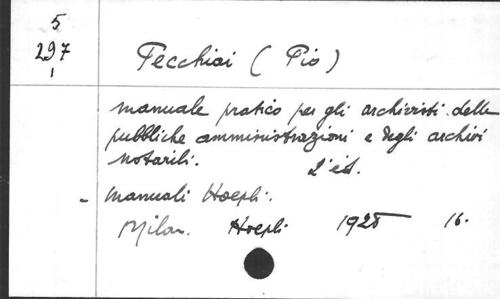 5
297
1
Pecchiai (Pio)
manuale pratico per gli archivisti delle
pubbliche amministrazioni e degli archivi
notarili.
2ª ed.
- manuali Hoepli.
Milan. Hoepli 1928 16.